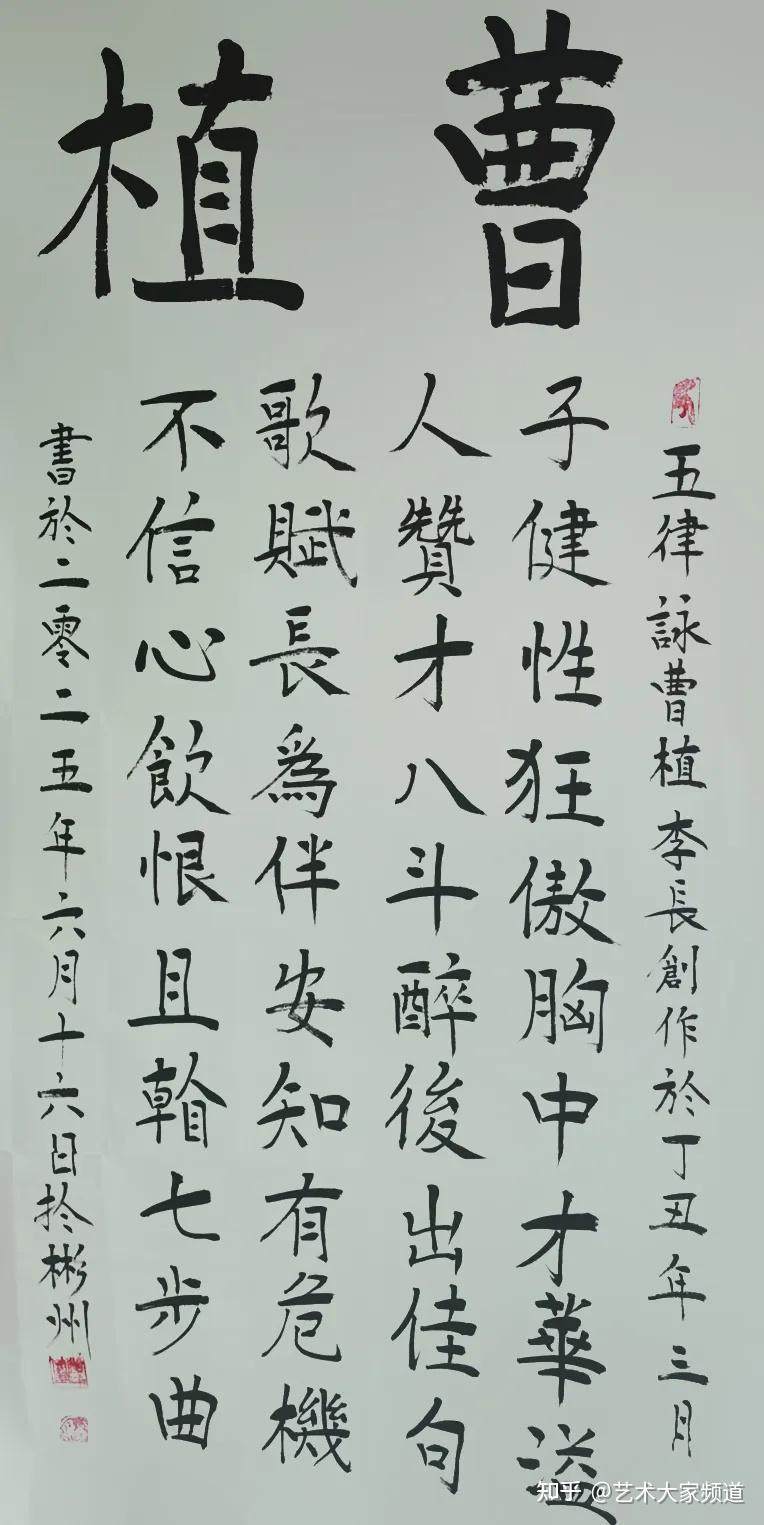 曹植
五律詠曹植李長創作於丁丑年三月
子健性狂傲胸中才華溢
人贊才八斗醉後出佳句
歌賦長爲伴安知有危機
不信心飲恨且七步曲
書於二零二五年六月十六日扵彬州
知乎 @艺术大家频道